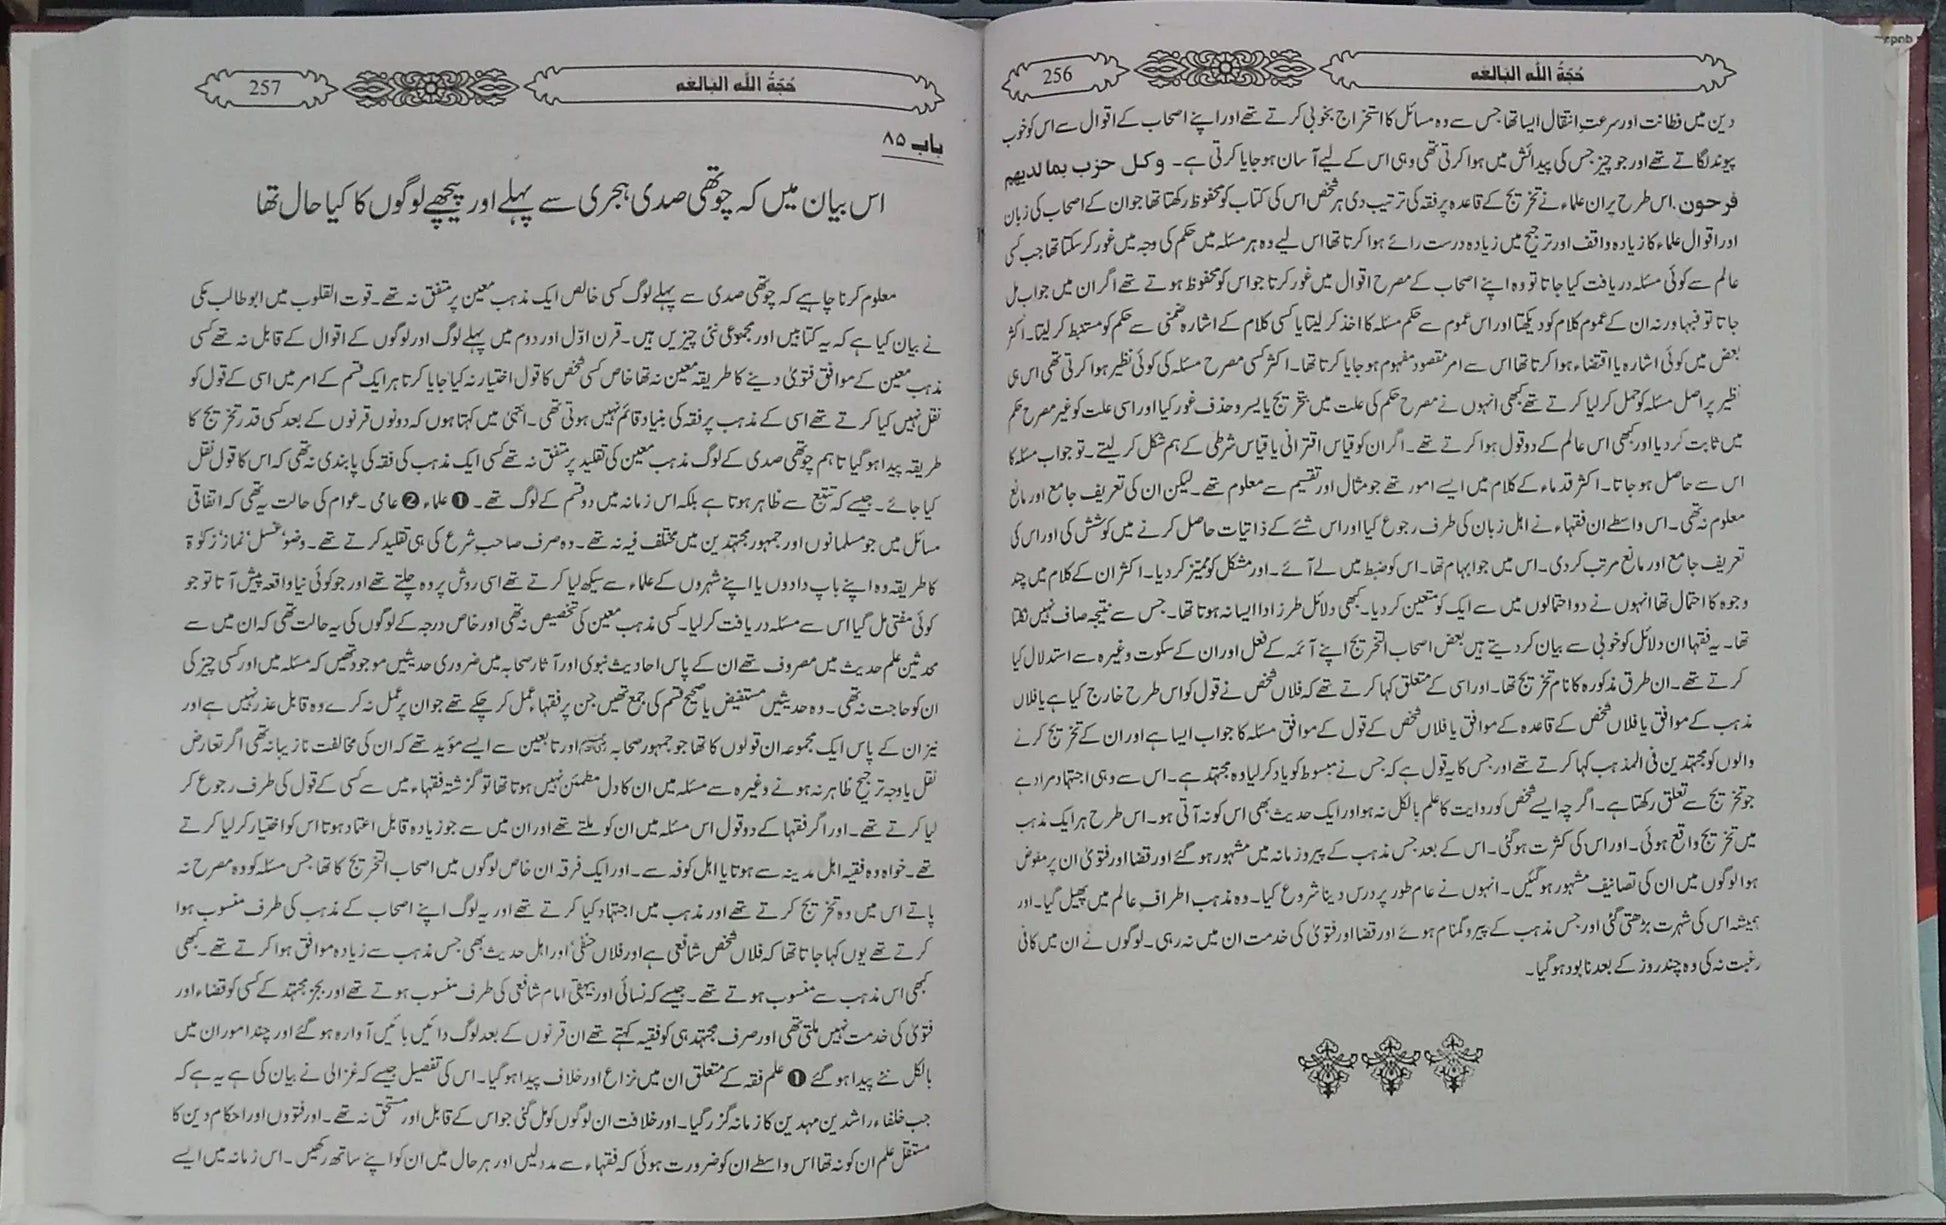 حُجَّةُ اللّٰه البالغه
256
دین میں فطانت اور سرعتِ انتقال ایسا تھا جس سے وہ مسائل کا استخراج بخوبی کرتے تھے اور اپنے اصحاب کے اقوال سے اس کو خوب
پیوند لگاتے تھے اور جو چیز جس کی پیدائش میں ہوا کرتی تھی وہی اس کے لیے آسان ہو جایا کرتی ہے۔ وکل حزب بما لدیهم
فرحون. اس طرح پر ان علماء نے تخریج کے قاعدہ پر فقہ کی ترتیب دی ہر شخص اس کی کتاب کو محفوظ رکھتا تھا جو ان کے اصحاب کی زبان
اور اقوال علماء کا زیادہ واقف اور ترجیح میں زیادہ درست رائے ہوا کرتا تھا اس لیے وہ ہر مسئلہ میں حکم کی وجہ میں غور کر سکتا تھا جب کسی
عالم سے کوئی مسئلہ دریافت کیا جاتا تو وہ اپنے اصحاب کے مصرح اقوال میں غور کرتا جو اس کو محفوظ ہوتے تھے اگر ان میں جواب مل
جاتا تو فبہا ورنہ ان کے عموم کلام کو دیکھتا اور اس عموم سے حکم مسئلہ کا اخذ کر لیتا یا کسی کلام کے اشارہ ضمنی سے حکم کو مستنبط کر لیتا۔ اکثر
بعض میں کوئی اشارہ یا اقتضاء ہوا کرتا تھا اس سے امر مقصود مفہوم ہو جایا کرتا تھا۔ اکثر کسی مصرح مسئلہ کی کوئی نظیر ہوا کرتی تھی اس ہی
نظیر پر اصل مسئلہ کو حمل کر لیا کرتے تھے کبھی انہوں نے مصرح حکم کی علت میں تخریج یا یسر و حذف غور کیا اور اسی علت کو غیر مصرح حکم
میں ثابت کر دیا اور کبھی اس عالم کے دو قول ہوا کرتے تھے۔ اگر ان کو قیاس اقترانی یا قیاس شرطی کے ہم شکل کر لیتے۔ تو جواب مسئلہ کا
اس سے حاصل ہو جاتا۔ اکثر قدماء کے کلام میں ایسے امور تھے جو مثال اور تقسیم سے معلوم تھے۔ لیکن ان کی تعریف جامع اور مانع
معلوم نہ تھی۔ اس واسطے ان فقہاء نے اہل زبان کی طرف رجوع کیا اور اس شئے کے ذاتیات حاصل کرنے میں کوشش کی اور اس کی
تعریف جامع اور مانع مرتب کر دی۔ اس میں جو ابہام تھا۔ اس کو ضبط میں لے آئے۔ اور مشکل کو ممیّز کر دیا۔ اکثر ان کے کلام میں چند
وجوہ کا احتمال تھا انہوں نے دو احتمالوں میں سے ایک کو متعین کر دیا۔ کبھی دلائل طرز ادا ایسا نہ ہوتا تھا۔ جس سے نتیجہ صاف نہیں نکلتا
تھا۔ یہ فقہا ان دلائل کو خوبی سے بیان کر دیتے ہیں بعض اصحاب التخریج اپنے آئمہ کے فعل اور ان کے سکوت وغیرہ سے استدلال کیا
کرتے تھے۔ ان طرق مذکورہ کا نام تخریج تھا۔ اور اسی کے متعلق کہا کرتے تھے کہ فلاں شخص نے قول کو اس طرح خارج کیا ہے یا فلاں
مذہب کے موافق یا فلاں شخص کے قاعدہ کے موافق یا فلاں شخص کے قول کے موافق مسئلہ کا جواب ایسا ہے اور ان کے تخریج کرنے
والوں کو مجتہدین فی المذہب کہا کرتے تھے اور جس کا یہ قول ہے کہ جس نے مبسوط کو یاد کر لیا وہ مجتہد ہے۔ اس سے وہی اجتہاد مراد ہے
جو تخریج سے تعلق رکھتا ہے۔ اگرچہ ایسے شخص کو روایت کا علم بالکل نہ ہو اور ایک حدیث بھی اس کو نہ آتی ہو۔ اس طرح ہر ایک مذہب
میں تخریج واقع ہوئی۔ اور اس کی کثرت ہو گئی۔ اس کے بعد جس مذہب کے پیرو زمانہ میں مشہور ہو گئے اور قضا اور فتویٰ ان پر مفوض
ہوا لوگوں میں ان کی تصانیف مشہور ہو گئیں۔ انہوں نے عام طور پر درس دینا شروع کیا۔ وہ مذہب اطراف عالم میں پھیل گیا۔ اور
ہمیشہ اس کی شہرت بڑھتی گئی اور جس مذہب کے پیرو گمنام ہوئے اور قضا اور فتویٰ کی خدمت ان میں نہ رہی۔ لوگوں نے ان میں کافی
رغبت نہ کی وہ چند روز کے بعد نابود ہو گیا۔
حُجَّةُ اللّٰه البالغه
257
باب ۸۵
اس بیان میں کہ چوتھی صدی ہجری سے پہلے اور پیچھے لوگوں کا کیا حال تھا
معلوم کرنا چاہیے کہ چوتھی صدی سے پہلے لوگ کسی خالص ایک مذہب معین پر متفق نہ تھے۔ قوت القلوب میں ابو طالب مکی
نے بیان کیا ہے کہ یہ کتابیں اور مجموعی نئی چیزیں ہیں۔ قرن اوّل اور دوم میں پہلے لوگ اور لوگوں کے اقوال کے قابل نہ تھے کسی
مذہب معین کے موافق فتویٰ دینے کا طریقہ معین نہ تھا خاص کسی شخص کا قول اختیار نہ کیا جایا کرتا ہر ایک قسم کے امر میں اسی کے قول کو
نقل نہیں کیا کرتے تھے اسی کے مذہب پر فقہ کی بنیاد قائم نہیں ہوتی تھی۔ انتہیٰ میں کہتا ہوں کہ دونوں قرنوں کے بعد کسی قدر تخریج کا
طریقہ پیدا ہو گیا تاہم چوتھی صدی کے لوگ مذہب معین کی تقلید پر متفق نہ تھے کسی ایک مذہب کی فقہ کی پابندی نہ تھی کہ اس کا قول نقل
کیا جائے۔ جیسے کہ تتبع سے ظاہر ہوتا ہے بلکہ اس زمانہ میں دو قسم کے لوگ تھے۔ ❶ علماء ❷ عامی۔ عوام کی حالت یہ تھی کہ اتفاقی
مسائل میں جو مسلمانوں اور جمہور مجتہدین میں مختلف فیہ نہ تھے۔ وہ صرف صاحب شرع کی ہی تقلید کرتے تھے۔ وضو' غسل' نماز' زکوٰۃ
کا طریقہ وہ اپنے باپ دادوں یا اپنے شہروں کے علماء سے سیکھ لیا کرتے تھے اسی روش پر وہ چلتے تھے اور جو کوئی نیا واقعہ پیش آتا تو جو
کوئی مفتی مل گیا اس سے مسئلہ دریافت کر لیا۔ کسی مذہب معین کی تخصیص نہ تھی اور خاص درجہ کے لوگوں کی یہ حالت تھی کہ ان میں سے
محدثین علم حدیث میں مصروف تھے ان کے پاس احادیث نبوی اور آثار صحابہ میں ضروری حدیثیں موجود تھیں کہ مسئلہ میں اور کسی چیز کی
ان کو حاجت نہ تھی۔ وہ حدیثیں مستفیض یا صحیح قسم کی جمع تھیں جن پر فقہاء عمل کر چکے تھے جو ان پر عمل نہ کرے وہ قابل عذر نہیں ہے اور
نیز ان کے پاس ایک مجموعہ ان قولوں کا تھا جو جمہور صحابہ اور تابعین سے ایسے مؤید تھے کہ ان کی مخالفت نازیبا نہ تھی اگر تعارض
نقل یا وجہ ترجیح ظاہر نہ ہونے وغیرہ سے مسئلہ میں ان کا دل مطمئن نہیں ہوتا تھا تو گزشتہ فقہاء میں سے کسی کے قول کی طرف رجوع کر
لیا کرتے تھے۔ اور اگر فقہا کے دو قول اس مسئلہ میں ان کو ملتے تھے اور ان میں سے جو زیادہ قابل اعتماد ہوتا اس کو اختیار کر لیا کرتے
تھے۔ خواہ وہ فقیہ اہل مدینہ سے ہوتا یا اہل کوفہ سے۔ اور ایک فرقہ ان خاص لوگوں میں اصحاب التخریج کا تھا جس مسئلہ کو وہ مصرح نہ
پاتے اس میں وہ تخریج کرتے تھے اور مذہب میں اجتہاد کیا کرتے تھے اور یہ لوگ اپنے اصحاب کے مذہب کی طرف منسوب ہوا
کرتے تھے یوں کہا جاتا تھا کہ فلاں شخص شافعی ہے اور فلاں حنفی' اور اہل حدیث بھی جس مذہب سے زیادہ موافق ہوا کرتے تھے۔ کبھی
کبھی اس مذہب سے منسوب ہوتے تھے۔ جیسے کہ نسائی اور بیہقی امام شافعی کی طرف منسوب ہوتے تھے اور بجز مجتہد کے کسی کو قضاء اور
فتویٰ کی خدمت نہیں ملتی تھی اور صرف مجتہد ہی کو فقیہ کہتے تھے ان قرنوں کے بعد لوگ دائیں بائیں آوارہ ہو گئے اور چند امور ان میں
بالکل نئے پیدا ہو گئے ❶ علم فقہ کے متعلق ان میں نزاع اور خلاف پیدا ہو گیا۔ اس کی تفصیل جیسے کہ غزالی نے بیان کی ہے یہ ہے کہ
جب خلفاء راشدین مہدین کا زمانہ گزر گیا۔ اور خلافت ان لوگوں کو مل گئی جو اس کے قابل اور مستحق نہ تھے۔ اور فتووں اور احکام دین کا
مستقل علم ان کو نہ تھا اس واسطے ان کو ضرورت ہوئی کہ فقہاء سے مدد لیں اور ہر حال میں ان کو اپنے ساتھ رکھیں۔ اس زمانہ میں ایسے